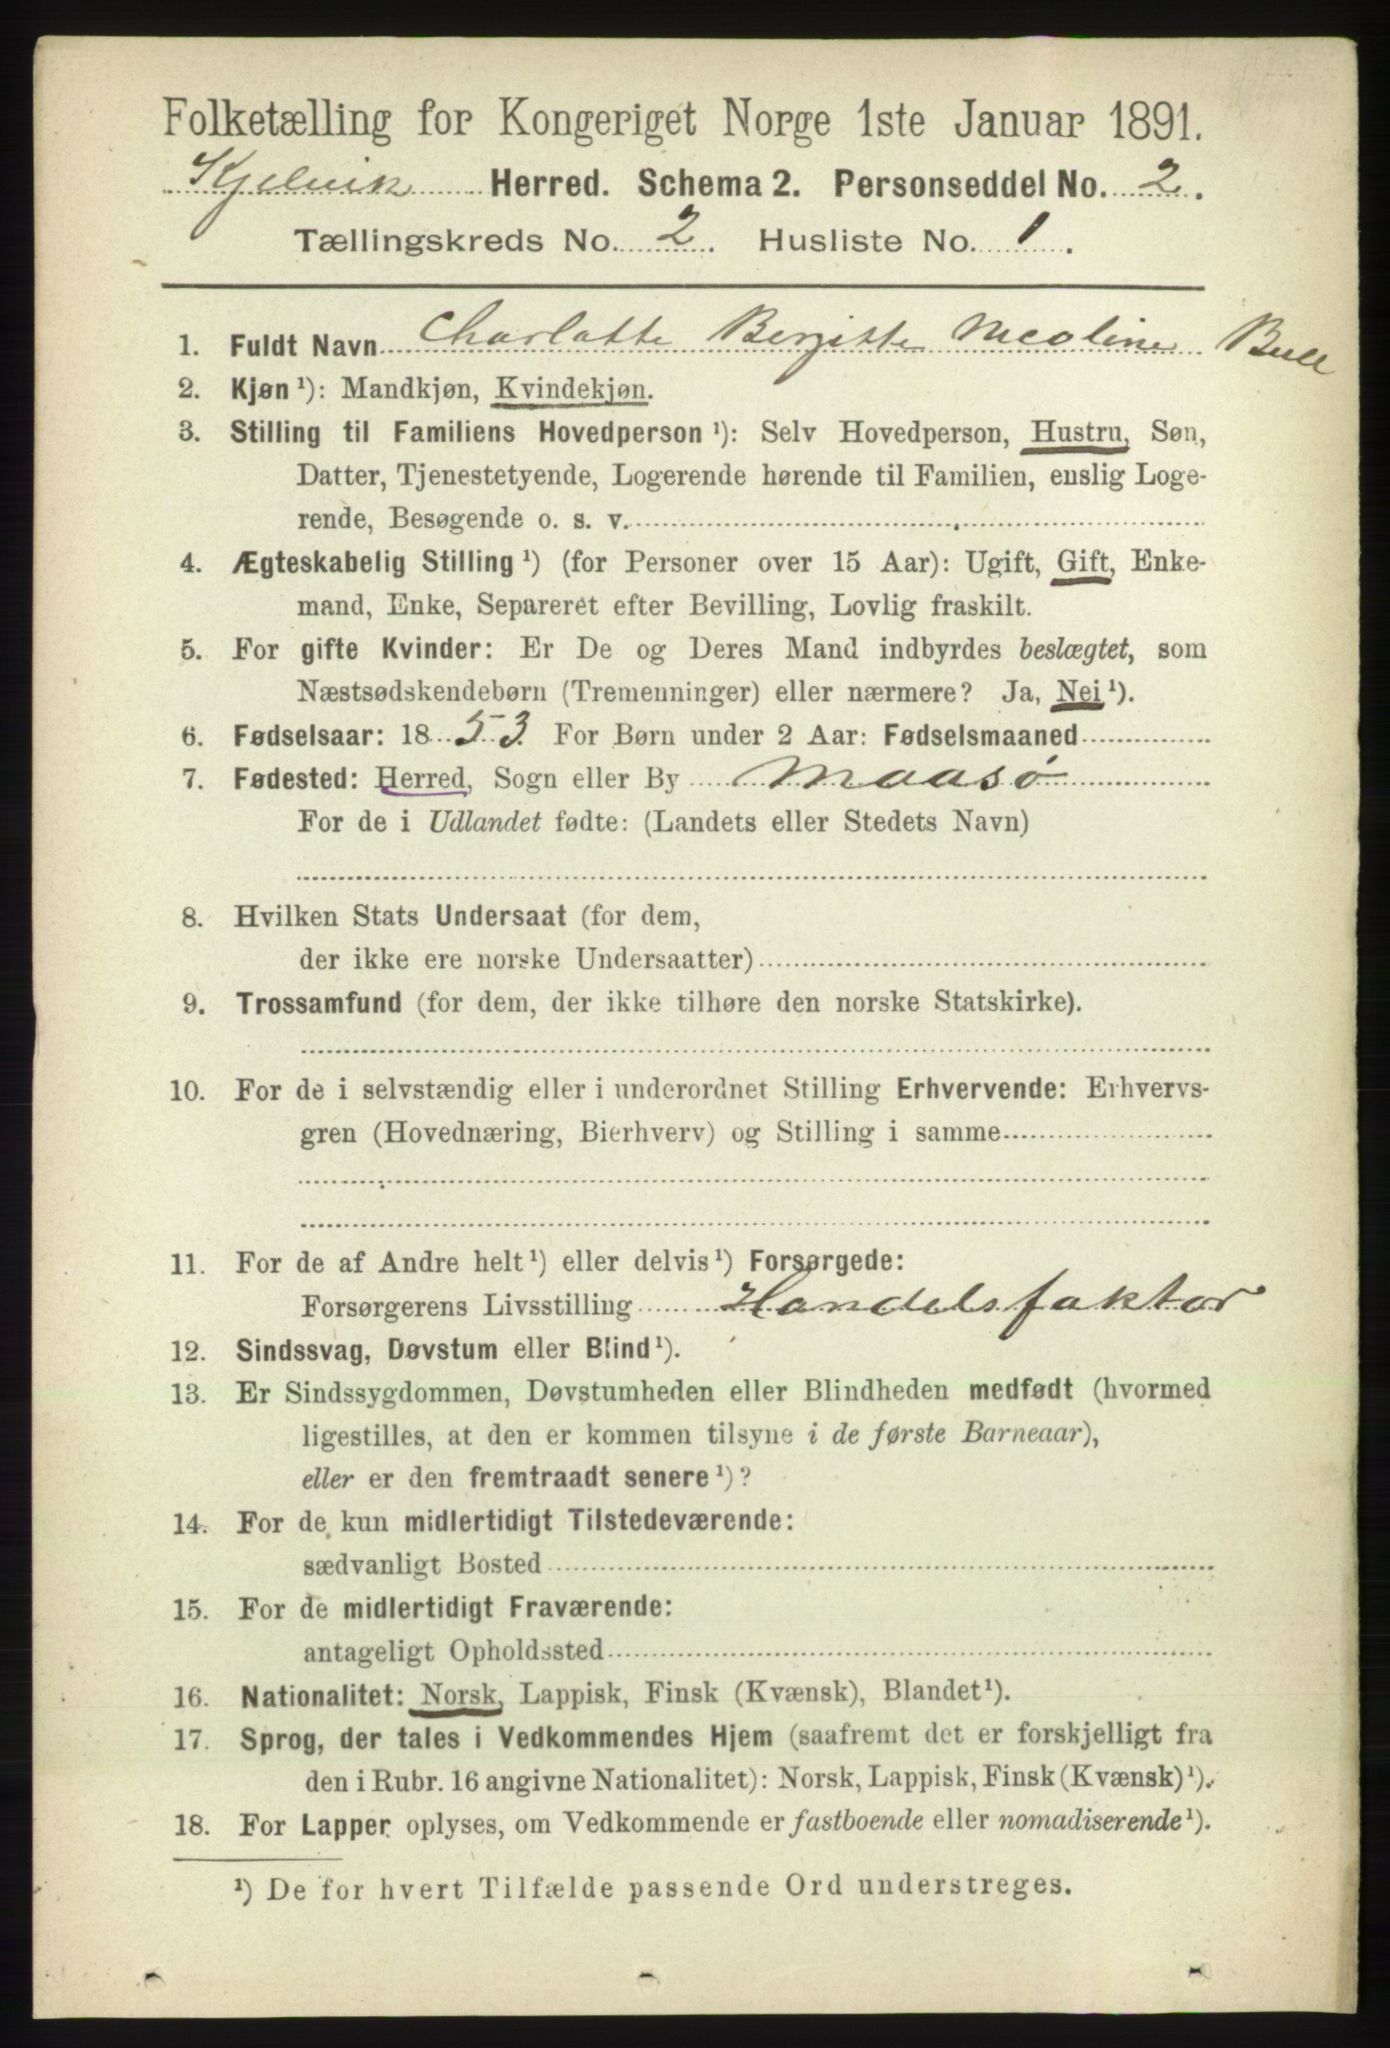 Folketælling for Kongeriget Norge 1ste Januar 1891.
Kjelvik Herred. Schema 2. Personseddel No. 2.
Tællingskreds No. 2. Husliste No. 1.
1. Fuldt Navn Charlotte Bergitte Nicoline Bull
2. Kjøn ¹): Mandkjøn, Kvindekjøn.
3. Stilling til Familiens Hovedperson ¹): Selv Hovedperson, Hustru, Søn,
Datter, Tjenestetyende, Logerende hørende til Familien, enslig Loge-
rende, Besøgende o. s. v.
4. Ægteskabelig Stilling ¹) (for Personer over 15 Aar): Ugift, Gift, Enke-
mand, Enke, Separeret efter Bevilling, Lovlig fraskilt.
5. For gifte Kvinder: Er De og Deres Mand indbyrdes beslægtet, som
Næstsødskendebørn (Tremenninger) eller nærmere? Ja, Nei ¹).
6. Fødselsaar: 1853. For Børn under 2 Aar: Fødselsmaaned
7. Fødested: Herred, Sogn eller By Maasø
For de i Udlandet fødte: (Landets eller Stedets Navn)
8. Hvilken Stats Undersaat (for dem,
der ikke ere norske Undersaatter)
9. Trossamfund (for dem, der ikke tilhøre den norske Statskirke).
10. For de i selvstændig eller i underordnet Stilling Erhvervende: Erhvervs-
gren (Hovednæring, Bierhverv) og Stilling i samme
11. For de af Andre helt ¹) eller delvis ¹) Forsørgede:
Forsørgerens Livsstilling Handelsfaktor
12. Sindssvag, Døvstum eller Blind ¹).
13. Er Sindssygdommen, Døvstumheden eller Blindheden medfødt (hvormed
ligestilles, at den er kommen tilsyne i de første Barneaar),
eller er den fremtraadt senere ¹)?
14. For de kun midlertidigt Tilstedeværende:
sædvanligt Bosted
15. For de midlertidigt Fraværende:
antageligt Opholdssted
16. Nationalitet: Norsk, Lappisk, Finsk (Kvænsk), Blandet ¹).
17. Sprog, der tales i Vedkommendes Hjem (saafremt det er forskjelligt fra
den i Rubr. 16 angivne Nationalitet): Norsk, Lappisk, Finsk (Kvænsk) ¹).
18. For Lapper oplyses, om Vedkommende er fastboende eller nomadiserende ¹).
¹) De for hvert Tilfælde passende Ord understreges.